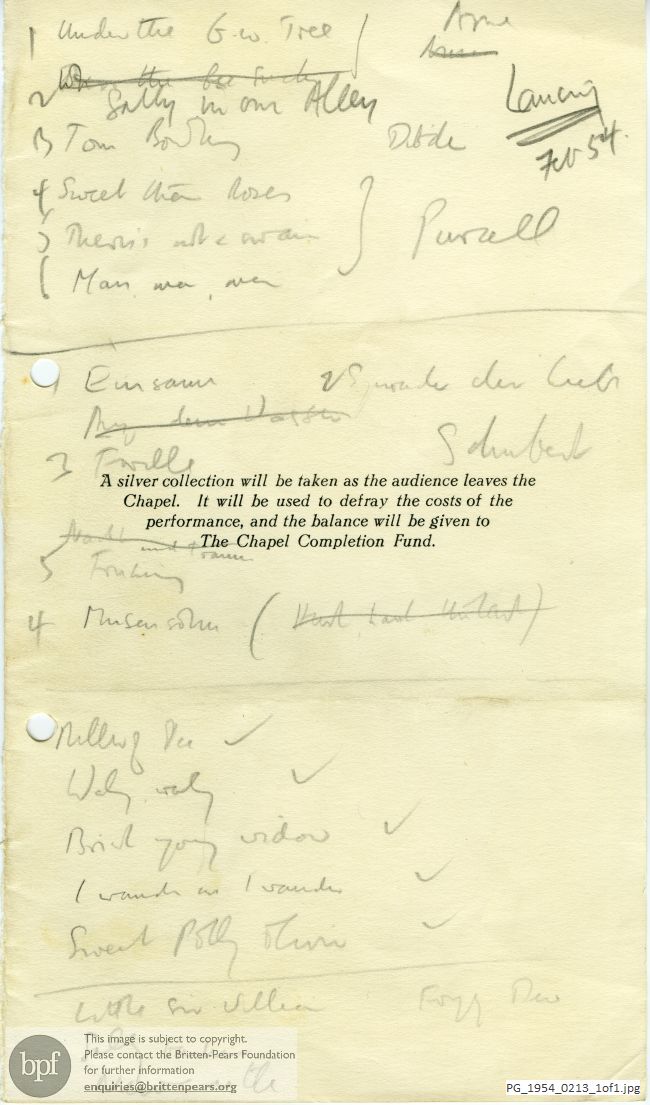 1 Under the G.w. Tree Arne
2 Sally in our Alley
Lancing
Feb 54.
3 Tom Bowling Dibdin
4 Sweeter than Roses
5 There's not a swain Purcell
6 Man, man, man
1 Einsam 2 der Liebe
Auf dem Wasser
3 Forelle Schubert
A silver collection will be taken as the audience leaves the
Chapel. It will be used to defray the costs of the
performance, and the balance will be given to
The Chapel Completion Fund.
Nacht und Träume
5 Frühling
4 Musensohn (
Miller of Dee ✓
Waly, waly ✓
Brisk young widow ✓
I wonder as I wander ✓
Sweet Polly Oliver ✓
Little Sir William Foggy Dew
bpf
This image is subject to copyright.
Please contact the Britten-Pears Foundation
for further information
enquiries@brittenpears.org
PG_1954_0213_1of1.jpg